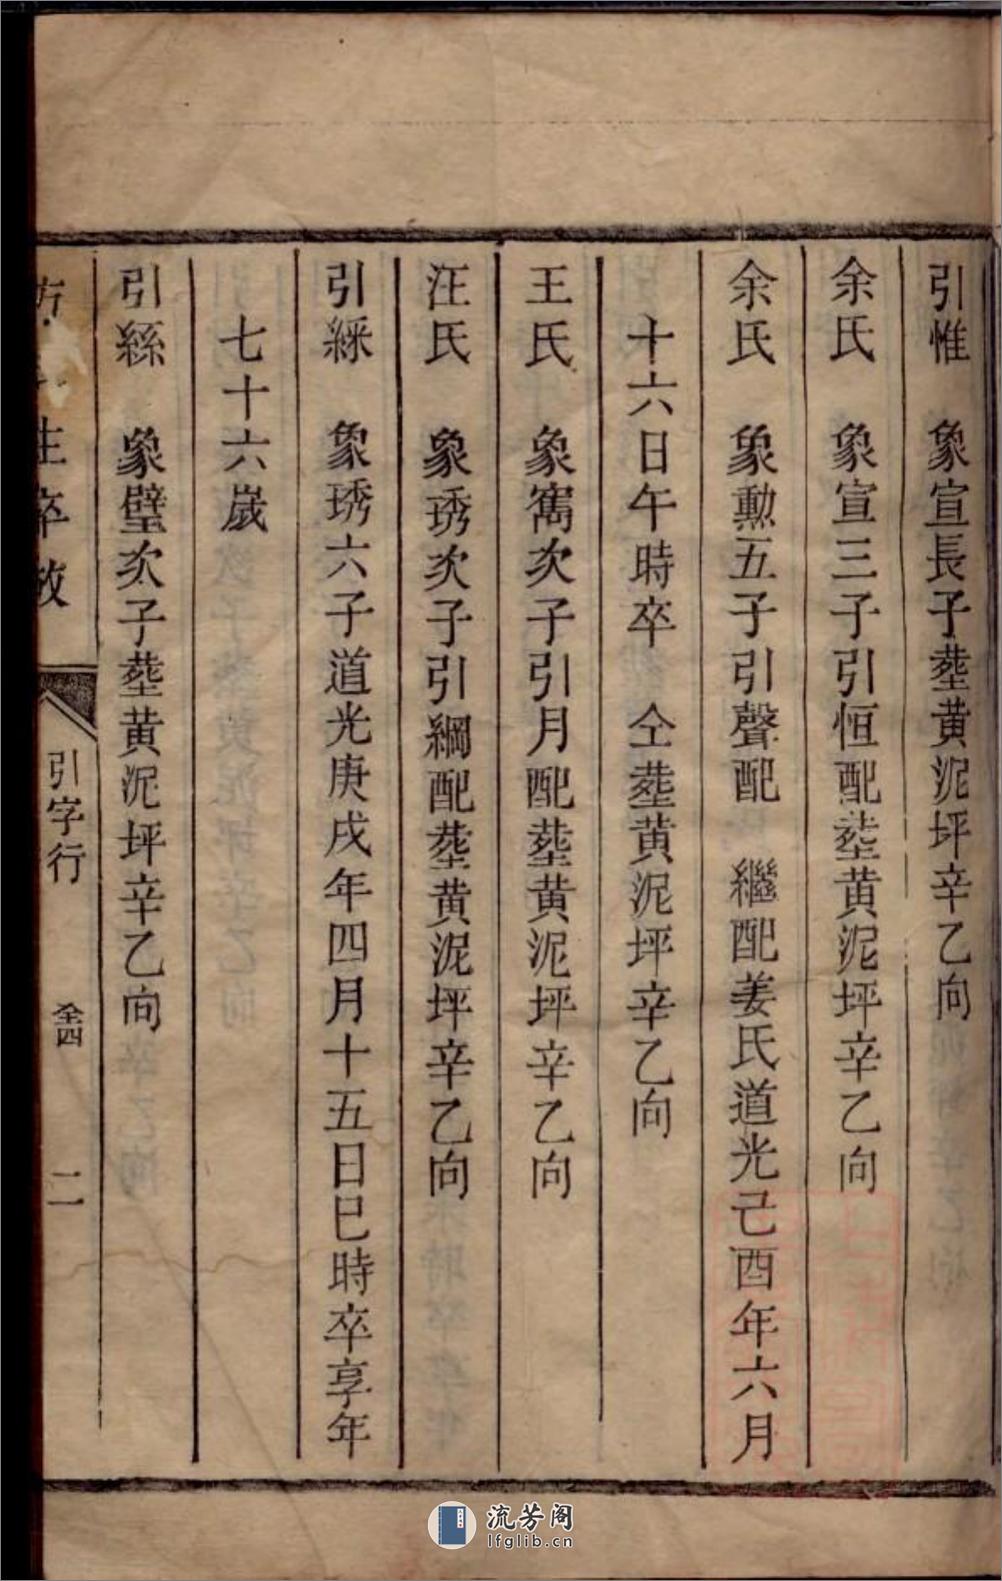 引惟　象宣長子塟黄泥坪辛乙向
余氏　象宣三子引恒配塟黄泥坪辛乙向
余氏　象勲五子引聲配　繼配姜氏道光己酉年六月
十六日午時卒　仝塟黄泥坪辛乙向
王氏　象寯次子引月配塟黄泥坪辛乙向
汪氏　象琇次子引綱配塟黄泥坪辛乙向
引綵　象琇六子道光庚戌年四月十五日巳時卒享年
七十六嵗
引緜　象璧次子塟黄泥坪辛乙向
生卒攷
引字行
仝四
二
流芳阁
lfglib.cn